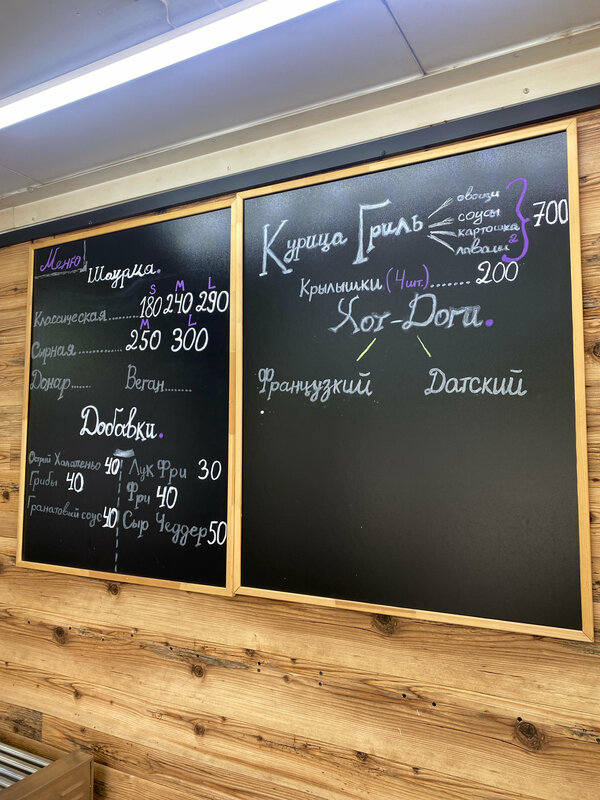 Меню
Шаурма.
S M L
Классическая........... 180 240 290
M L
Сырная............... 250 300
Донар...... Веган........
Добавки.
Острый Халапеньо 40
Грибы 40
Гранатовый соус 40
Лук Фри 30
Фри 40
Сыр Чеддер 50
Курица Гриль
овощи
соусы
картошка
лаваш 2
700
Крылышки (4 шт.)....... 200
Хот-Доги.
Французкий Датский